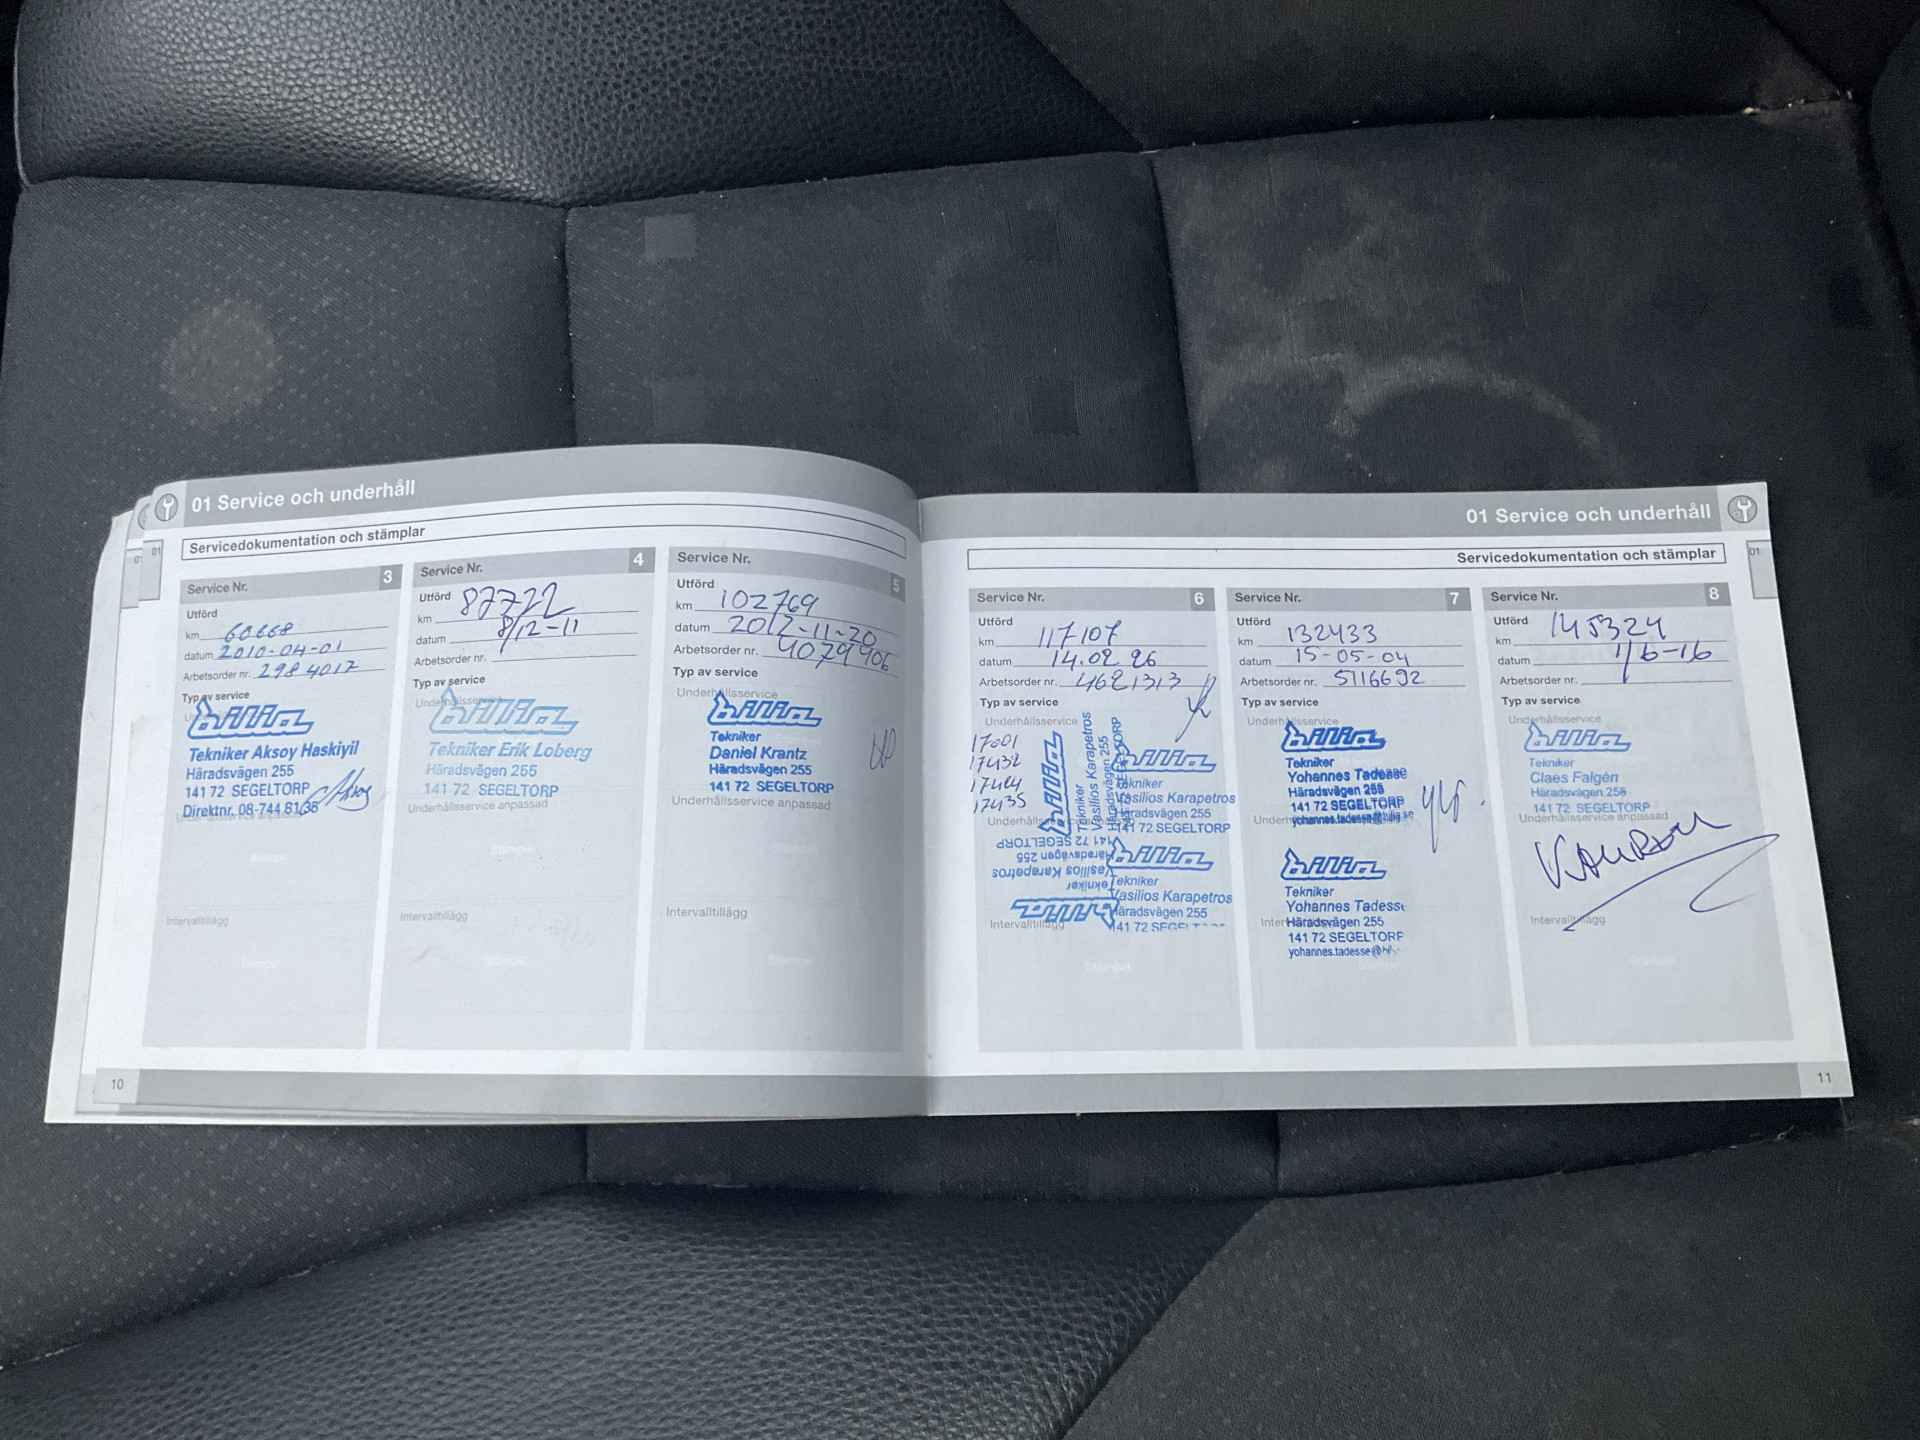 01 Service och underhåll
Servicedokumentation och stämplar
Service Nr. 3
Utförd
km 60668
datum 2010-04-01
Arbetsorder nr. 2984017
Typ av service
bilia
Tekniker Aksoy Haskiyil
Häradsvägen 255
141 72 SEGELTORP
Direktnr. 08-744 81 35
Intervalltillägg
Service Nr. 4
Utförd
km 87722
datum 8/12-11
Arbetsorder nr.
Typ av service
Underhållsservice
bilia
Tekniker Erik Loberg
Häradsvägen 255
141 72 SEGELTORP
Underhållsservice anpassad
Stämpel
Intervalltillägg
Stämpel
Service Nr. 5
Utförd
km 102769
datum 2012-11-20
Arbetsorder nr. 4079406
Typ av service
Underhållsservice
bilia
Tekniker
Daniel Krantz
Häradsvägen 255
141 72 SEGELTORP
Underhållsservice anpassad
Stämpel
Intervalltillägg
Stämpel
10
01 Service och underhåll
Servicedokumentation och stämplar
01
Service Nr. 6
Utförd
km 117107
datum 14.02.26
Arbetsorder nr. 4621313
Typ av service
Underhållsservice
17001
17432
17424
17435
bilia
Tekniker
Vasilios Karapetros
Häradsvägen 255
141 72 SEGELTORP
bilia
Tekniker
Vasilios Karapetros
Häradsvägen 255
141 72 SEGELTORP
bilia
Tekniker
Vasilios Karapetros
Häradsvägen 255
141 72 SEGELTORP
bilia
Tekniker
Vasilios Karapetros
Häradsvägen 255
141 72 SEGEL
Intervalltillägg
Stämpel
Service Nr. 7
Utförd
km 132433
datum 15-05-04
Arbetsorder nr. 5116692
Typ av service
Underhållsservice
bilia
Tekniker
Yohannes Tadesse
Häradsvägen 255
141 72 SEGELTORP
yohannes.tadesse@bilia.se
bilia
Tekniker
Yohannes Tadesse
Häradsvägen 255
141 72 SEGELTORP
yohannes.tadesse@
Service Nr. 8
Utförd
km 145324
datum 1/6-16
Arbetsorder nr.
Typ av service
Underhållsservice
bilia
Tekniker
Claes Falgén
Häradsvägen 255
141 72 SEGELTORP
Underhållsservice anpassad
Intervalltillägg
Stämpel
11